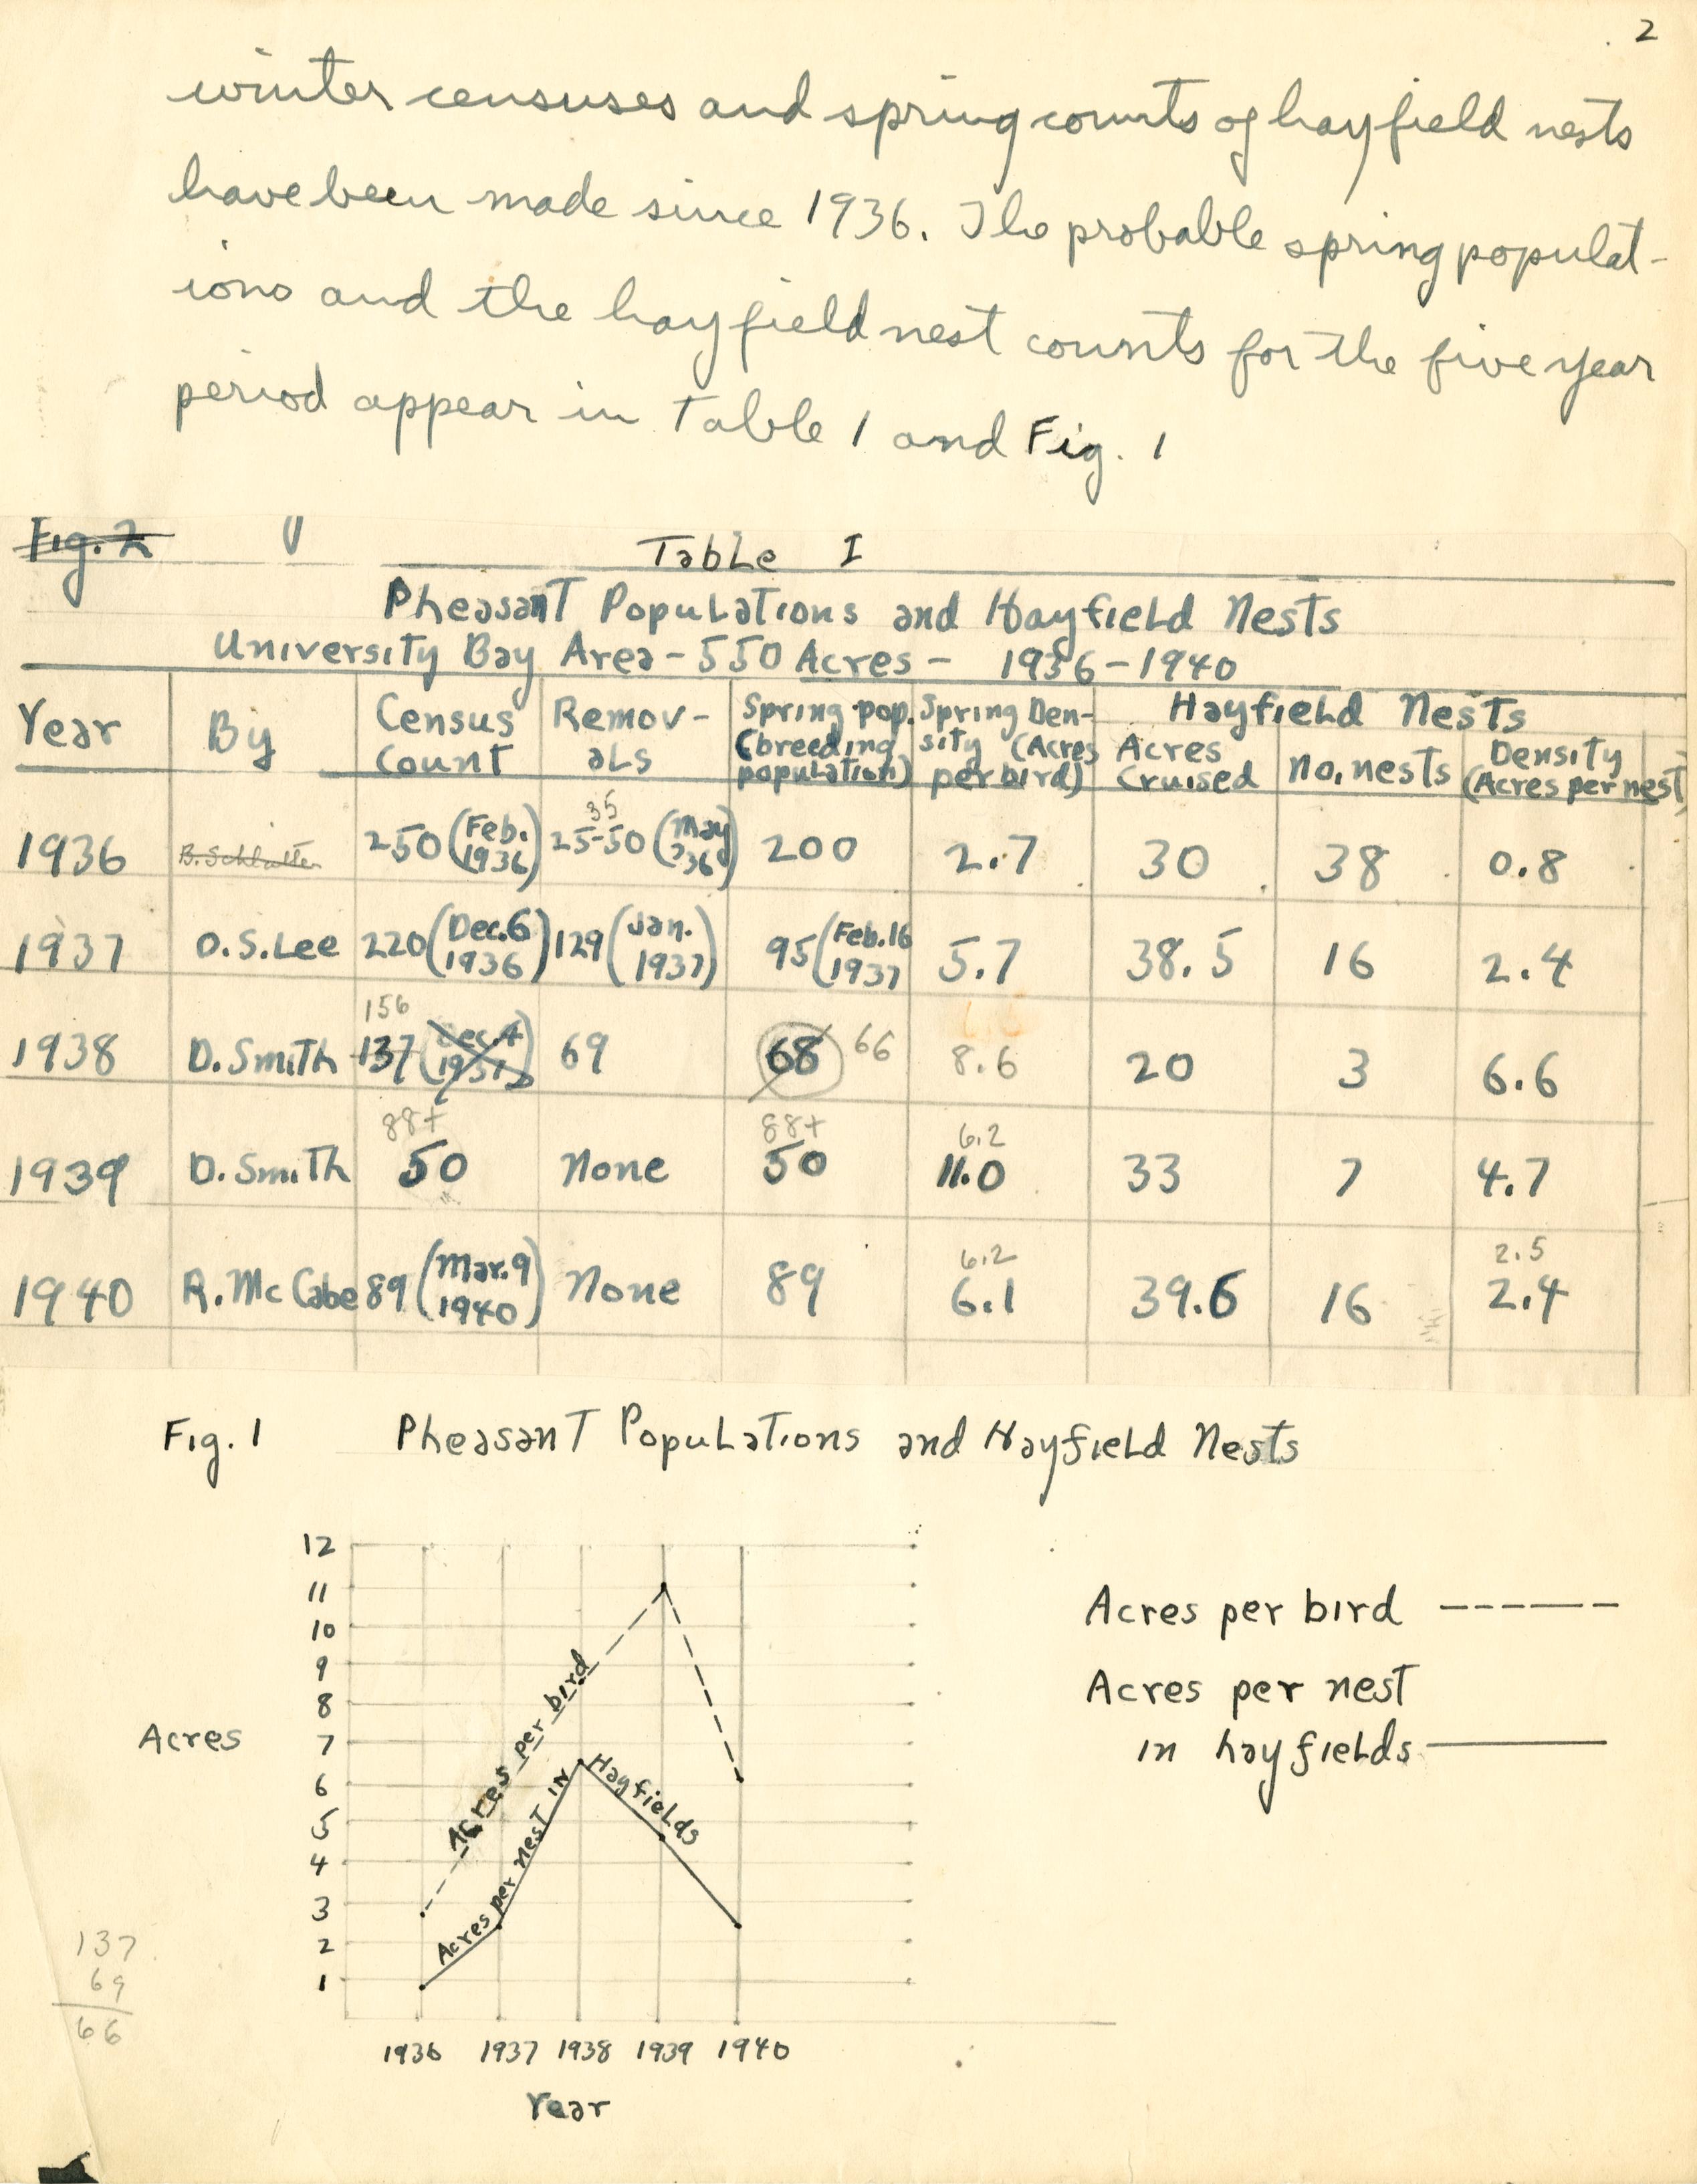 2
winter censuses and spring counts of hayfield nests
have been made since 1936. The probable spring populat-
ions and the hayfield nest counts for the five year
period appear in Table 1 and Fig. 1
Fig. 2
Table I
Pheasant Populations and Hayfield Nests
University Bay Area - 550 Acres - 1936-1940
Year By Census Count Remov-als Spring pop. (breeding population) Spring Den-sity (Acres per bird) Hayfield Nests Acres Cruised No. nests Density (Acres per nest)
35
1936 250 (Feb. 1936) 25-50 (May '36) 200 2.7 30 38 0.8
1937 O.S. Lee 220 (Dec. 6 1936) 129 (Jan. 1937) 95 (Feb. 16 1937 5.7 38.5 16 2.4
156
1938 D. Smith 137 (Dec. 4 1937) 69 68 66 8.6 20 3 6.6
88+ 88+ 6.2
1939 D. Smith 50 None 50 11.0 33 7 4.7
6.2 2.5
1940 R. McCabe 89 (Mar. 9 1940) None 89 6.1 39.6 16 2.4
Fig. 1 Pheasant Populations and Hayfield Nests
12
11
10
9
8
7
6
5
4
3
2
1
Acres
Acres per bird
Acres per nest in Hayfields
1936 1937 1938 1939 1940
Year
Acres per bird
Acres per nest
in hayfields
137
69
66